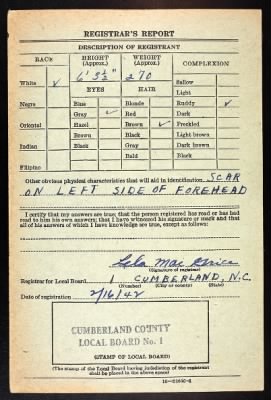 REGISTRAR'S REPORT
DESCRIPTION OF REGISTRANT
RACE HEIGHT (Approx.) WEIGHT (Approx.) COMPLEXION
6' 3½" 270
White ✓ EYES HAIR Sallow
Light
Negro Blue Blonde Ruddy ✓
Gray ✓ Red Dark
Oriental Hazel Brown ✓ Freckled
Brown Black Light brown
Indian Black Gray Dark brown
Bald Black
Filipino
Other obvious physical characteristics that will aid in identification SCAR
ON LEFT SIDE OF FOREHEAD
I certify that my answers are true; that the person registered has read or has had
read to him his own answers; that I have witnessed his signature or mark and that
all of his answers of which I have knowledge are true, except as follows:
Mae
(Signature of registrar)
Registrar for Local Board 1 CUMBERLAND, N.C.
(Number) (City or county) (State)
Date of registration 2/16/42
CUMBERLAND COUNTY
LOCAL BOARD No. 1
(STAMP OF LOCAL BOARD)
(The stamp of the Local Board having jurisdiction of the registrant
shall be placed in the above space)